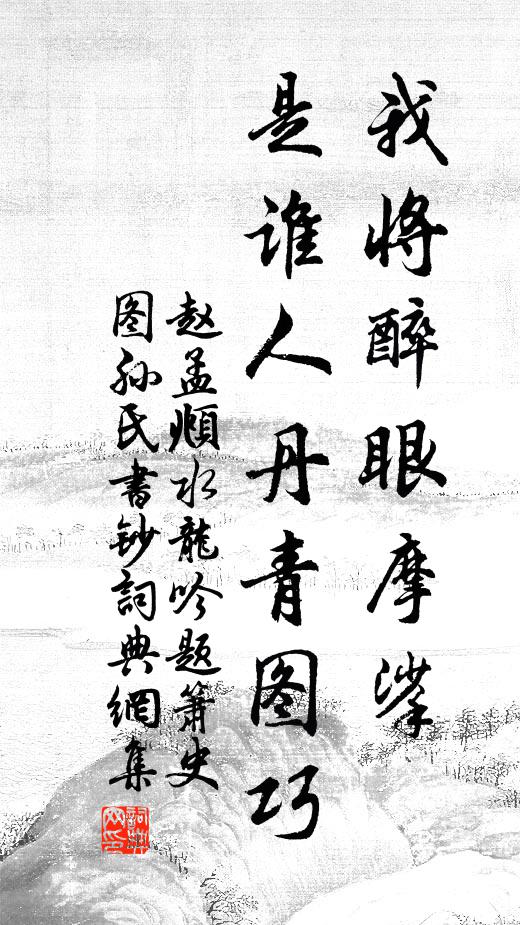 我将醉眼摩挲
是谁人丹青图巧
赵孟頫水龍吟题箫史
图孙氏書鈔詞典網集